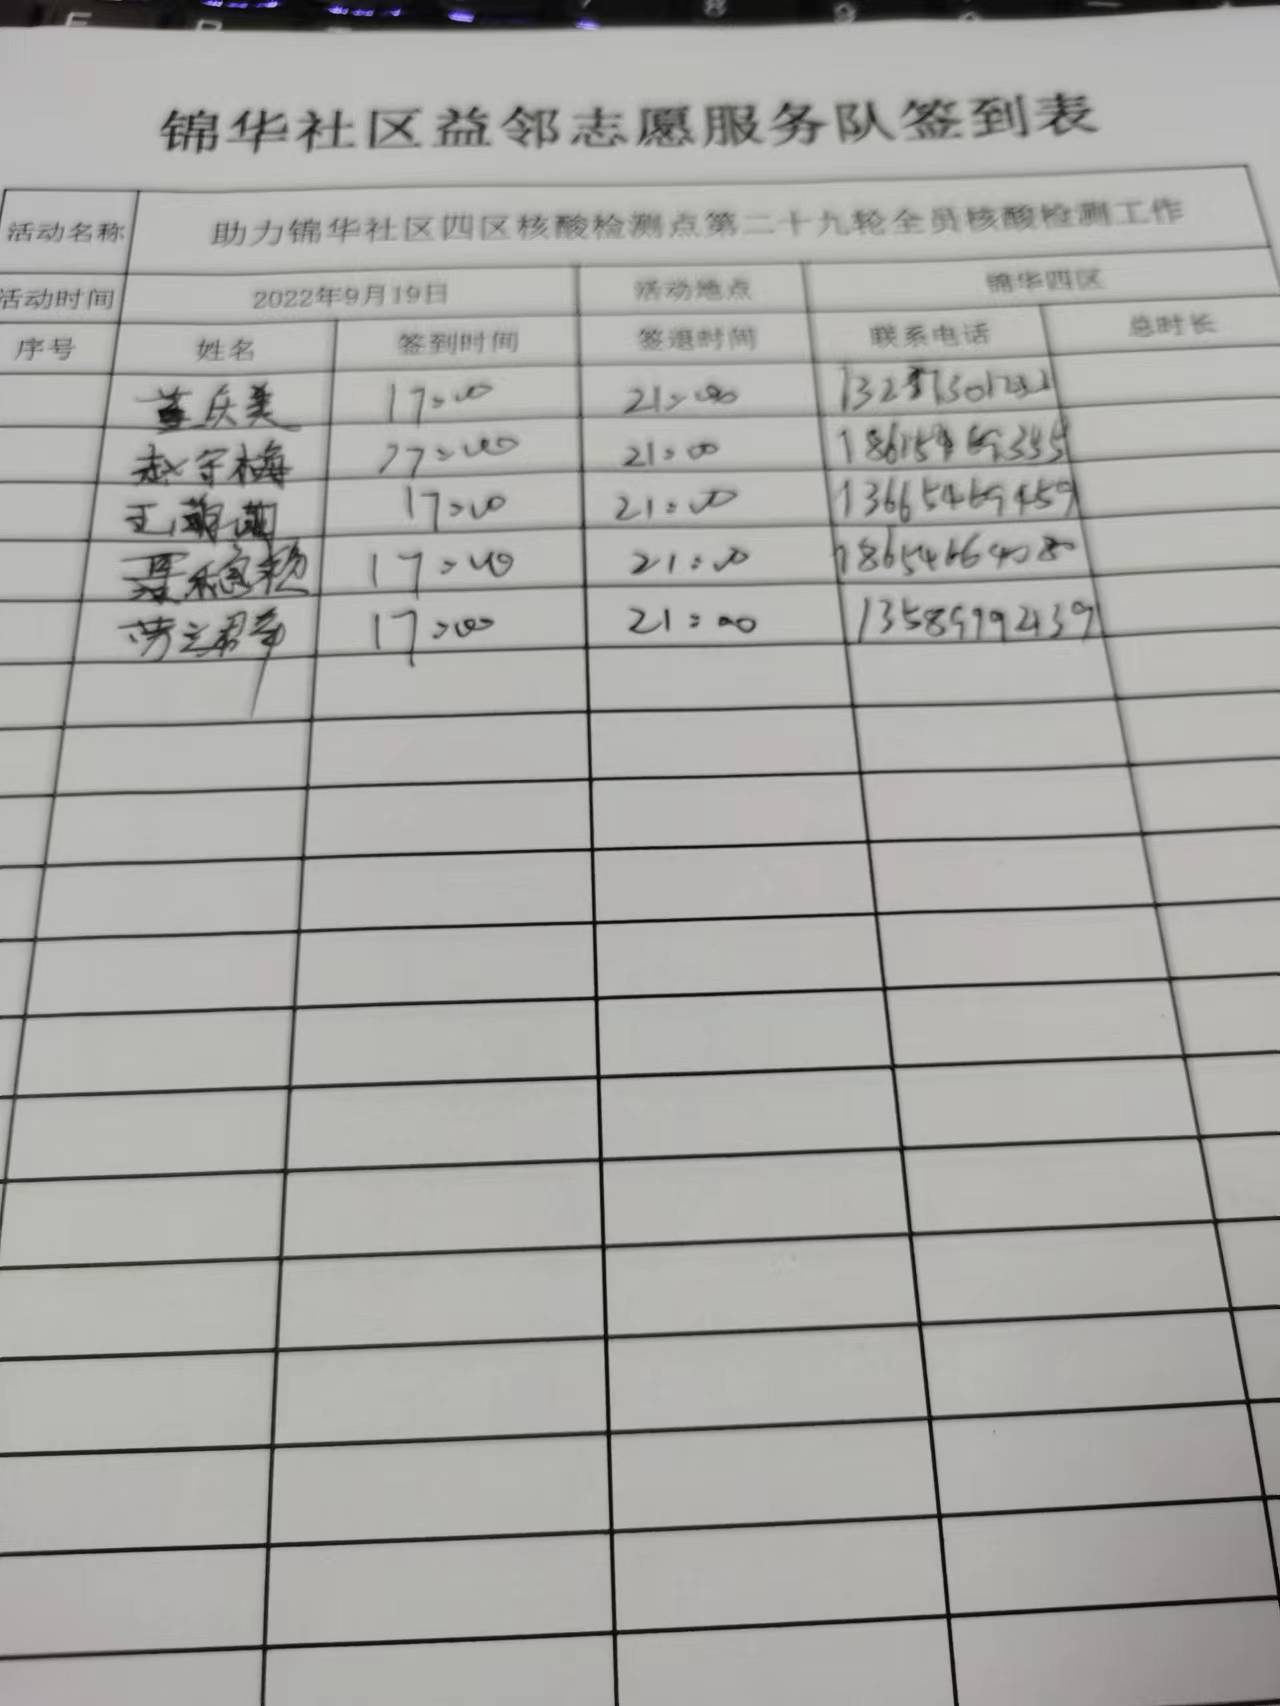 锦华社区益邻志愿服务队签到表
活动名称 助力锦华社区四区核酸检测点第二十九轮全员核酸检测工作
活动时间 2022年9月19日 活动地点 锦华四区
序号 姓名 签到时间 签退时间 联系电话 总时长
董庆美 17:00 21:00
赵宇梅 17:00 21:00
王 17:00 21:00 13665469459
17:00 21:00 18654664080
17:00 21:00 13589992439